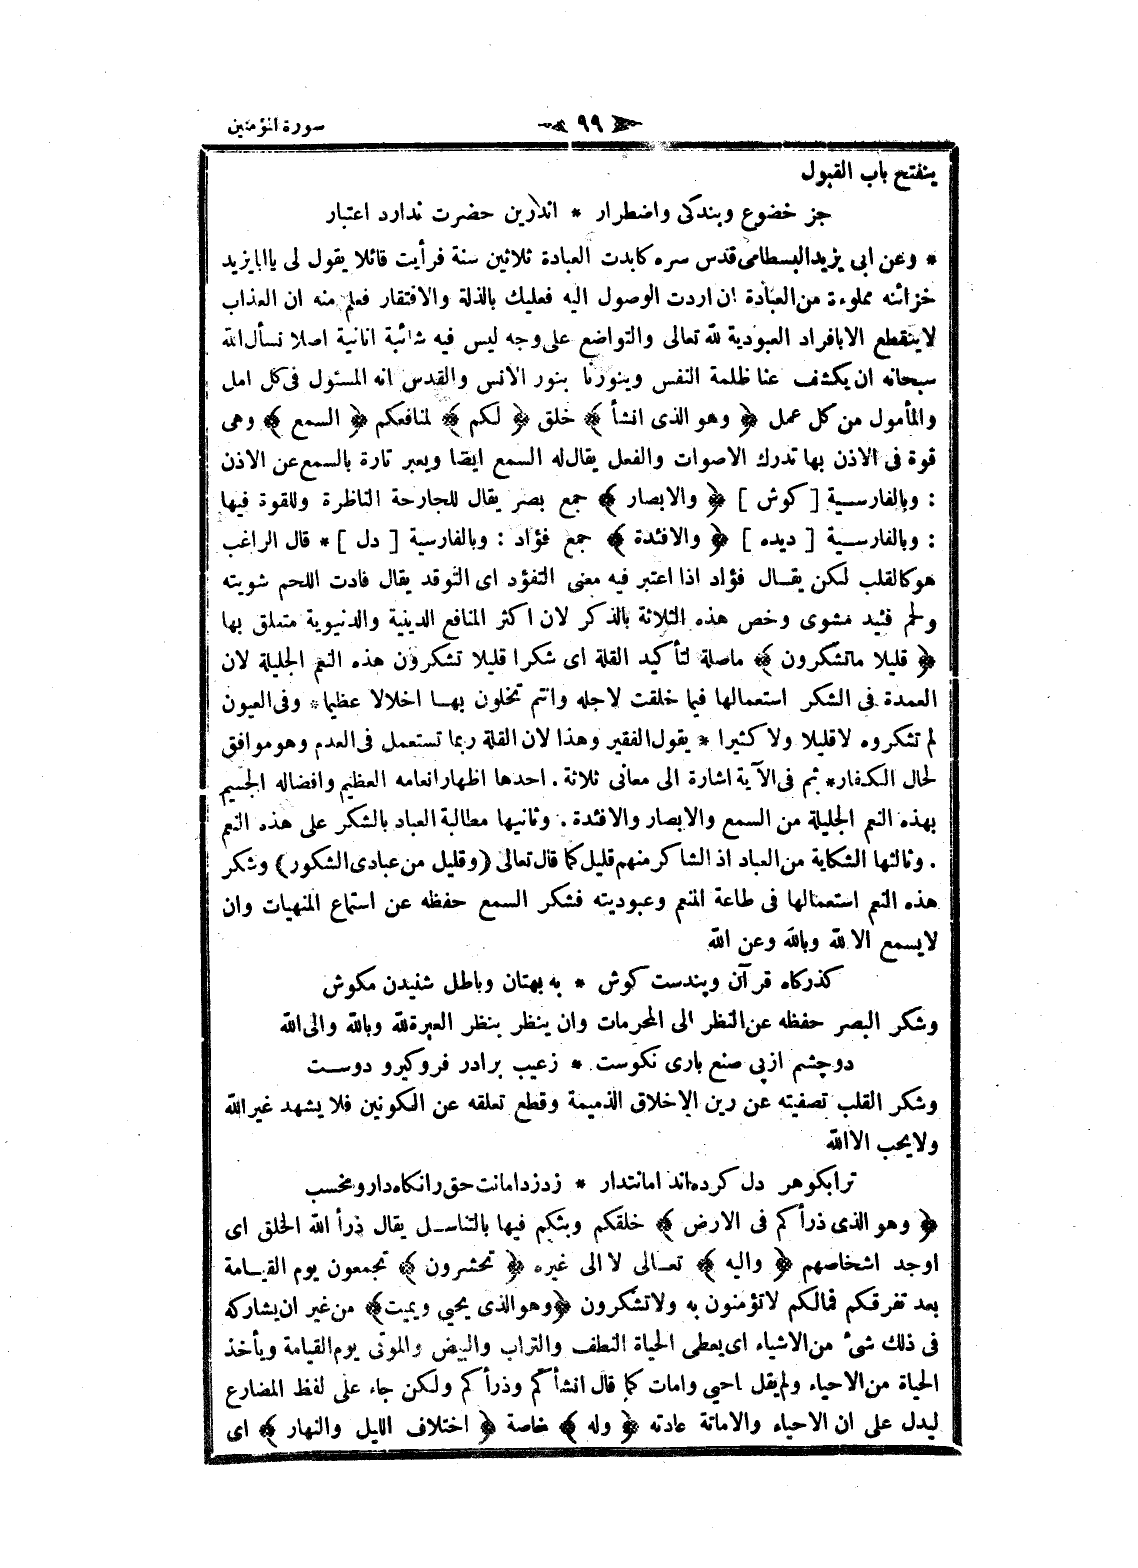 سورة المؤمنين
٩٩
ينفتح باب القبول
جز خضوع وبندكى واضطرار * اندرين حضرت ندارد اعتبار
* وعن ابى يزيد البسطامى قدس سره كابدت العبادة ثلاثين سنة فرأيت قائلا يقول لى ياابايزيد
خزائنه مملوءة من العبادة ان اردت الوصول اليه فعليك بالذلة والافتقار فعلم منه ان العذاب
لاينقطع الابافراد العبودية لله تعالى والتواضع على وجه ليس فيه شائبة انانية اصلا نسأل الله
سبحانه ان يكشف عنا ظلمة النفس وينورنا بنور الانس والقدس انه المسئول فى كل امل
والمأمول من كل عمل ﴿ وهو الذى انشأ ﴾ خلق ﴿ لكم ﴾ لمنافعكم ﴿ السمع ﴾ وهى
قوة فى الاذن بها تدرك الاصوات والفعل يقال له السمع ايضا ويعبر تارة بالسمع عن الاذن
: وبالفارسية [ كوش ] ﴿ والابصار ﴾ جمع بصر يقال للجارحة الناظرة وللقوة فيها
: وبالفارسية [ ديده ] ﴿ والافئدة ﴾ جمع فؤاد : وبالفارسية [ دل ] * قال الراغب
هو كالقلب لكن يقال فؤاد اذا اعتبر فيه معنى التفؤد اى التوقد يقال فادت اللحم شويته
ولحم فئيد مشوى وخص هذه الثلاثة بالذكر لان اكثر المنافع الدينية والدنيوية متعلق بها
﴿ قليلا ماتشكرون ﴾ ماصلة لتأكيد القلة اى شكرا قليلا تشكرون هذه النعم الجليلة لان
العمدة فى الشكر استعمالها فيما خلقت لاجله وانتم تخلون بها اخلالا عظيما * وفى العيون
لم تشكروه لاقليلا ولا كثيرا * يقول الفقير وهذا لان القلة ربما تستعمل فى العدم وهو موافق
لحال الكفار * ثم فى الآية اشارة الى معانى ثلاثة . احدها اظهار انعامه العظيم وافضاله الجسيم
بهذه النعم الجليلة من السمع والابصار والافئدة . وثانيها مطالبة العباد بالشكر على هذه النعم
. وثالثها الشكاية من العباد اذ الشاكر منهم قليل كما قال تعالى (وقليل من عبادى الشكور) وشكر
هذه النعم استعمالها فى طاعة المنعم وعبوديته فشكر السمع حفظه عن استماع المنهيات وان
لايسمع الا لله وبالله وعن الله
كذركاه قرآن وپندست كوش * به بهتان وباطل شنيدن مكوش
وشكر البصر حفظه عن النظر الى المحرمات وان ينظر بنظر العبرة لله وبالله والى الله
دوچشم ازپى صنع بارى نكوست * زعيب برادر فروكيرو دوست
وشكر القلب تصفيته عن رين الاخلاق الذميمة وقطع تعلقه عن الكونين فلا يشهد غير الله
ولايحب الا الله
ترابكوهر دل كرده اند امانتدار * زدزد امانت حق رانكاه دار ومخسب
﴿ وهو الذى ذرأكم فى الارض ﴾ خلقكم وبثكم فيها بالتناسل يقال ذرأ الله الخلق اى
اوجد اشخاصهم ﴿ واليه ﴾ تعالى لا الى غيره ﴿ تحشرون ﴾ تجمعون يوم القيامة
بعد تفرقكم فمالكم لاتؤمنون به ولاتشكرون ﴿ وهو الذى يحيى ويميت ﴾ من غير ان يشاركه
فى ذلك شىء من الاشياء اى يعطى الحياة النطف والتراب والبيض والموتى يوم القيامة ويأخذ
الحياة من الاحياء ولم يقل احيى وامات كما قال انشأكم وذرأكم ولكن جاء على لفظ المضارع
ليدل على ان الاحياء والاماتة عادته ﴿ وله ﴾ خاصة ﴿ اختلاف الليل والنهار ﴾ اى